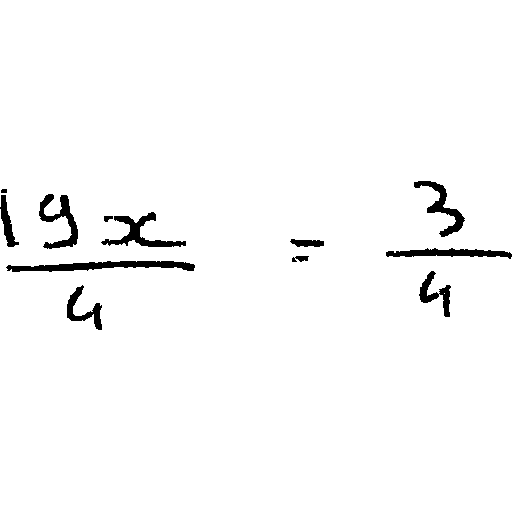 \frac{19x}{4} = \frac{3}{4}